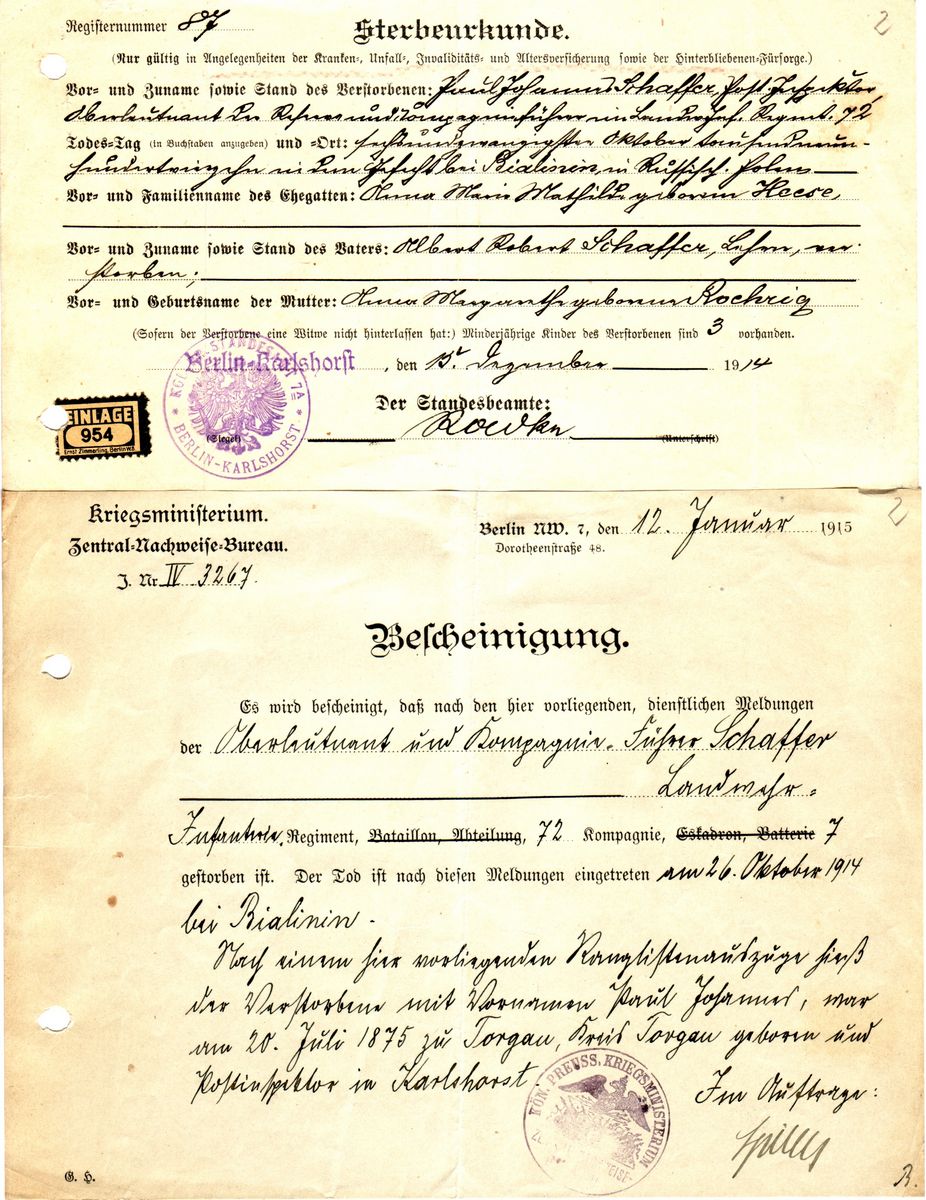 Registernummer 87
Sterbeurkunde.
2
(Nur gültig in Angelegenheiten der Kranken-, Unfall-, Invaliditäts- und Altersversicherung sowie der Hinterbliebenen-Fürsorge.)
Vor- und Zuname sowie Stand des Verstorbenen: Paul Johannes Schaffer, Post-Inspektor,
Oberleutnant der Reserve und Kompagnieführer im Landw. Inf. Regmt. 72
Todes-Tag (in Buchstaben anzugeben) und -Ort: sechsundzwanzigster Oktober tausendneun-
hundertvierzehn in dem Gefecht bei Bialinin, in Russisch-Polen
Vor- und Familienname des Ehegatten: Anna Marie Mathilde geborene Heese,
Vor- und Zuname sowie Stand des Vaters: Albert Robert Schaffer, Lehrer, ver-
storben;
Vor- und Geburtsname der Mutter: Anna Margarethe geborene Rochrig
(Sofern der Verstorbene eine Witwe nicht hinterlassen hat:) Minderjährige Kinder des Verstorbenen sind 3 vorhanden.
Berlin-Karlshorst, den 15t Dezember 1914
Der Standesbeamte:
(Siegel) (Unterschrift)
BERLIN-KARLSHORST
EINLAGE
954
Ernst Zimmerling, Berlin W8
Kriegsministerium.
Zentral-Nachweise-Bureau.
J. Nr IV 3267.
Berlin NW. 7, den 12. Januar 1915
Dorotheenstraße 48.
2
Bescheinigung.
Es wird bescheinigt, daß nach den hier vorliegenden, dienstlichen Meldungen
der Oberleutnant und Kompagnie-Führer Schaffer
Landwehr-
Infanterie-Regiment, Bataillon, Abteilung, 72 Kompagnie, Eskadron, Batterie 7
gestorben ist. Der Tod ist nach diesen Meldungen eingetreten am 26. Oktober 1914
bei Bialinin.
Nach einem hier vorliegenden Ranglistenauszuge hieß
der Verstorbene mit Vornamen Paul Johannes, war
am 20. Juli 1875 zu Torgau, Kreis Torgau geboren und
Postinspektor in Karlshorst.
KÖN. PREUSS. KRIEGSMINISTERIUM
Im Auftrage:
G. H.
R.